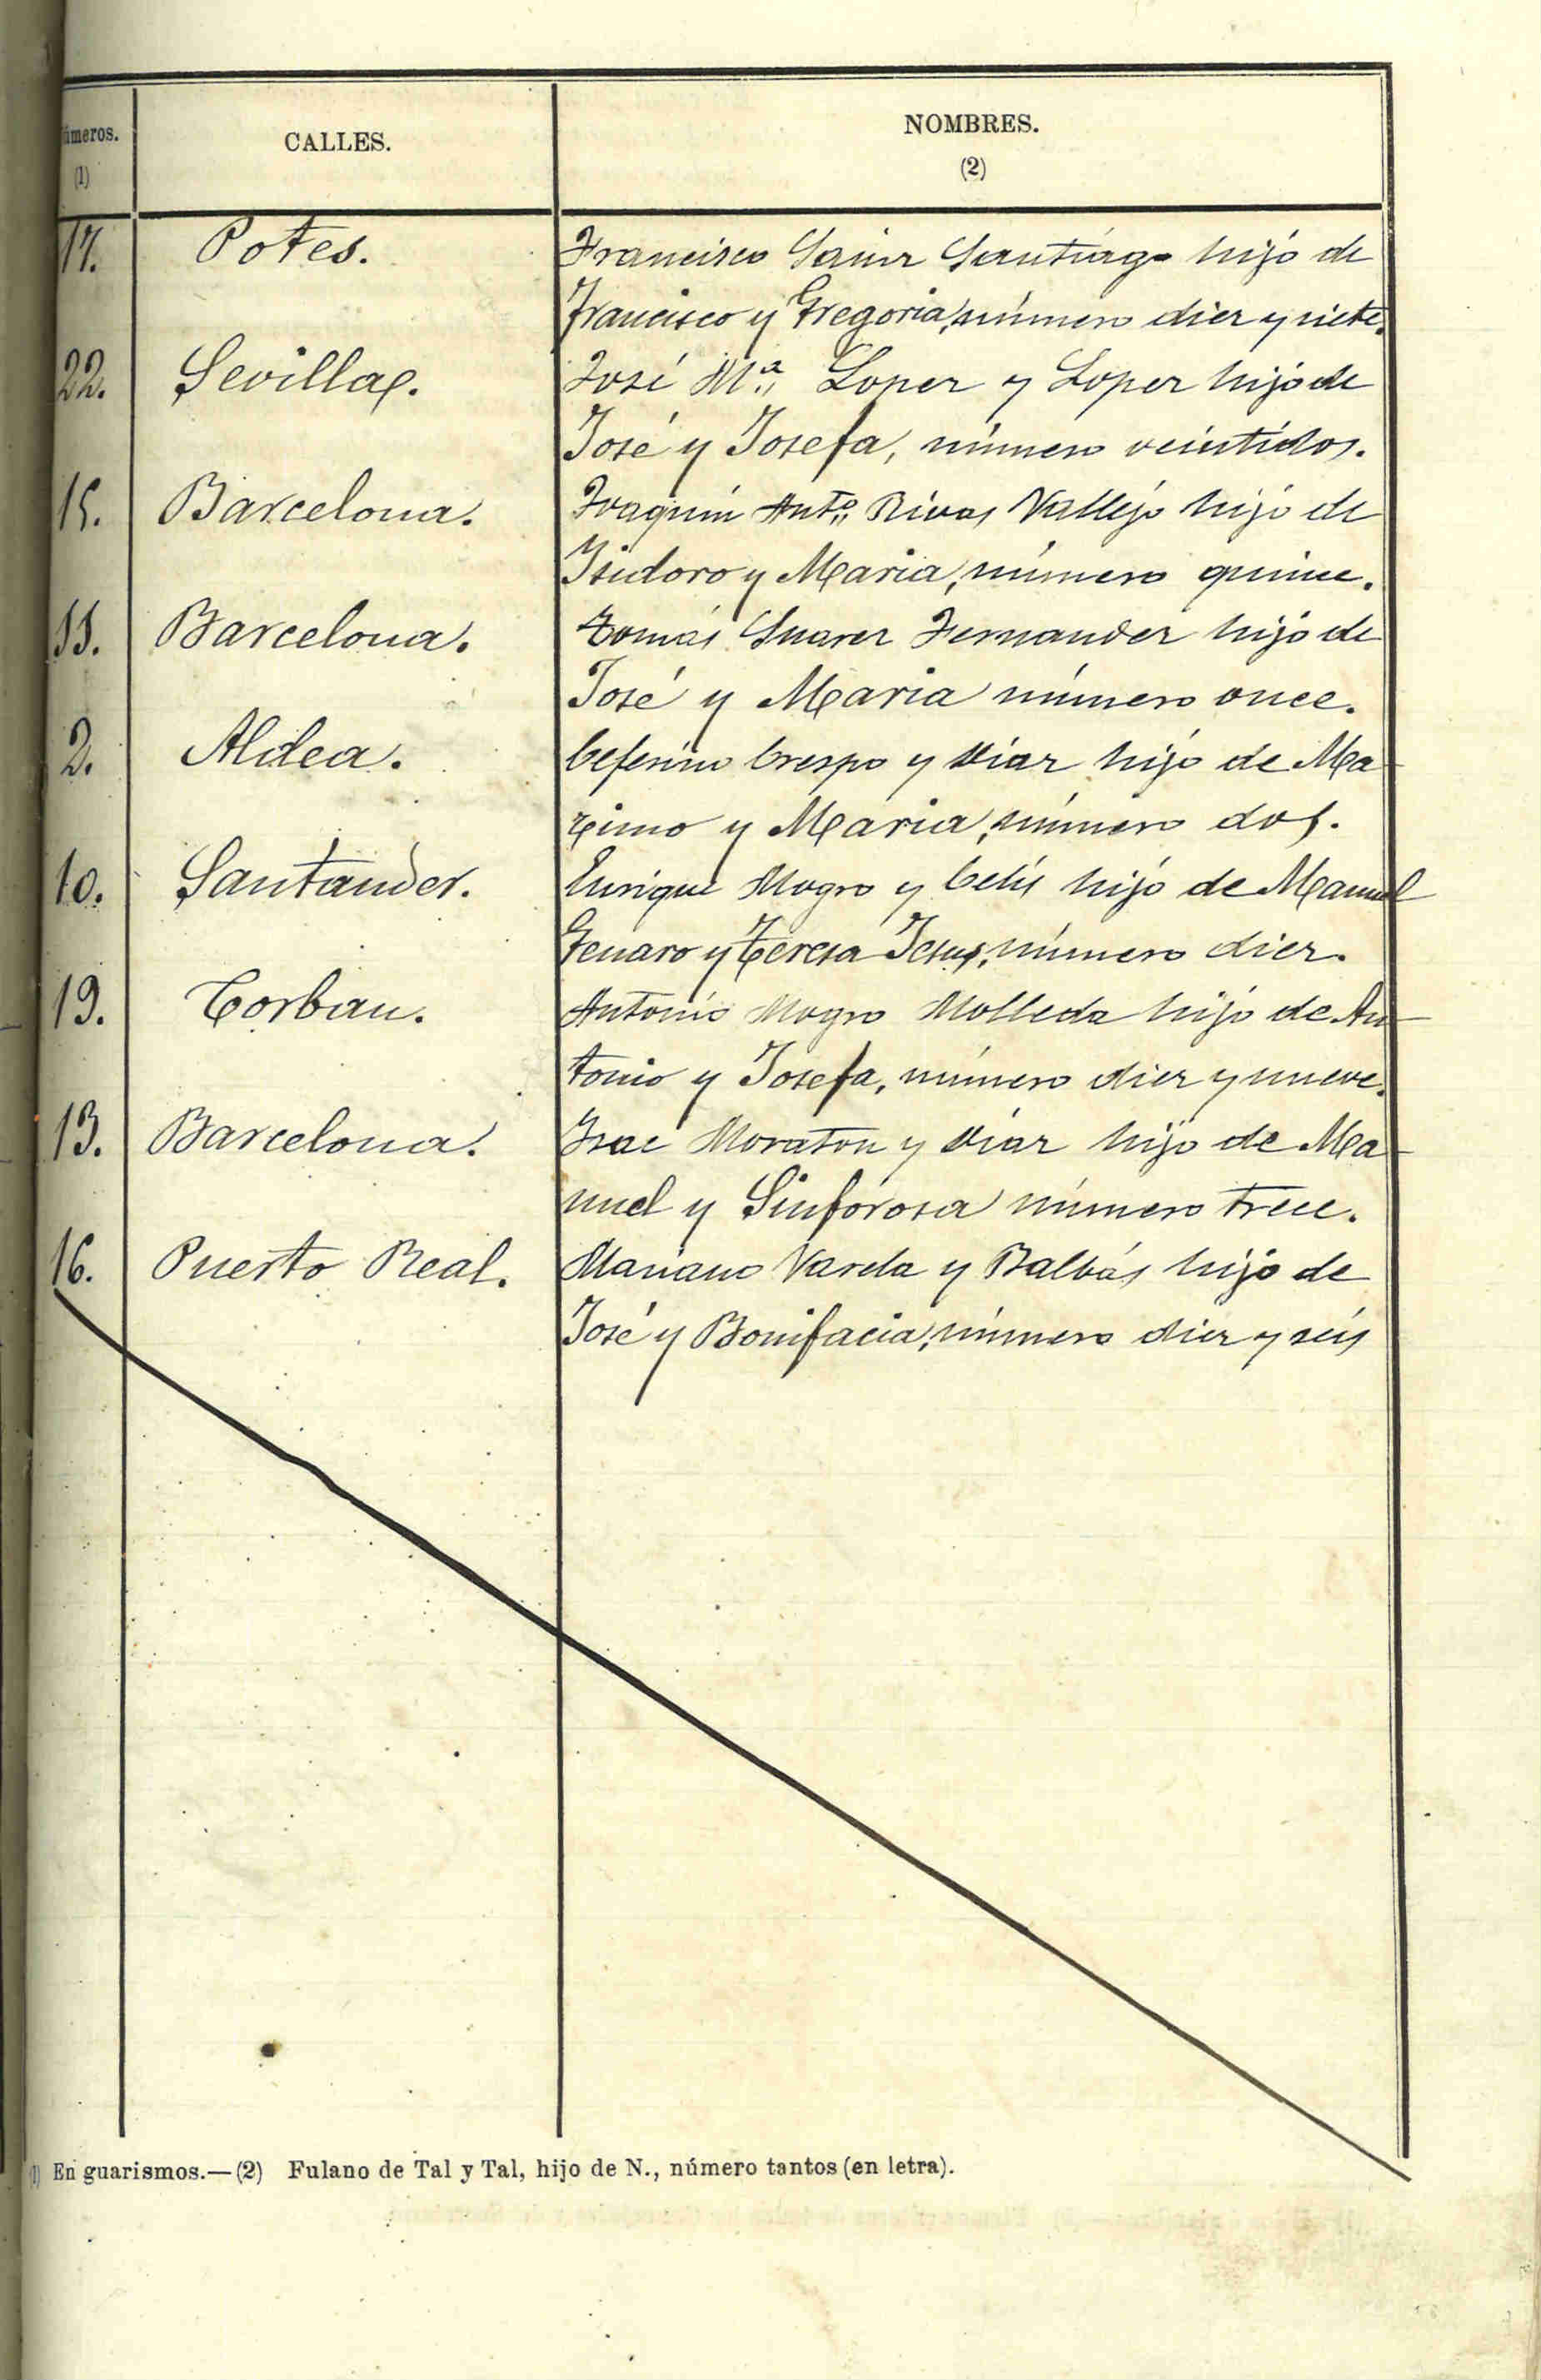 Números. CALLES. NOMBRES.
(1) (2)
17. Potes. Francisco Sainz Santiago hijo de
Francisco y Gregoria, número diez y siete.
22. Sevilla. José Mª Lopez y Lopez hijo de
José y Josefa, número veintidos.
15. Barcelona. Joaquin Antº Rivas Vallejo hijo de
Isidoro y Maria, número quince.
11. Barcelona. Tomás Suarez Fernandez hijo de
José y Maria número once.
2. Aldea. Ceferino Crespo y Diaz hijo de Ma
ximo y Maria, número dos.
10. Santander. Enrique Mogro y Celis hijo de Manuel
Genaro y Teresa Jesus, número diez.
19. Corban. Antonio Mogro Molleda hijo de An
tonio y Josefa, número diez y nueve.
13. Barcelona. Isac Moraton y Diaz hijo de Ma
nuel y Sinforosa número trece.
16. Puerto Real. Mariano Varela y Balbás hijo de
José y Bonifacia, número diez y seis
(1) En guarismos.—(2) Fulano de Tal y Tal, hijo de N., número tantos (en letra).